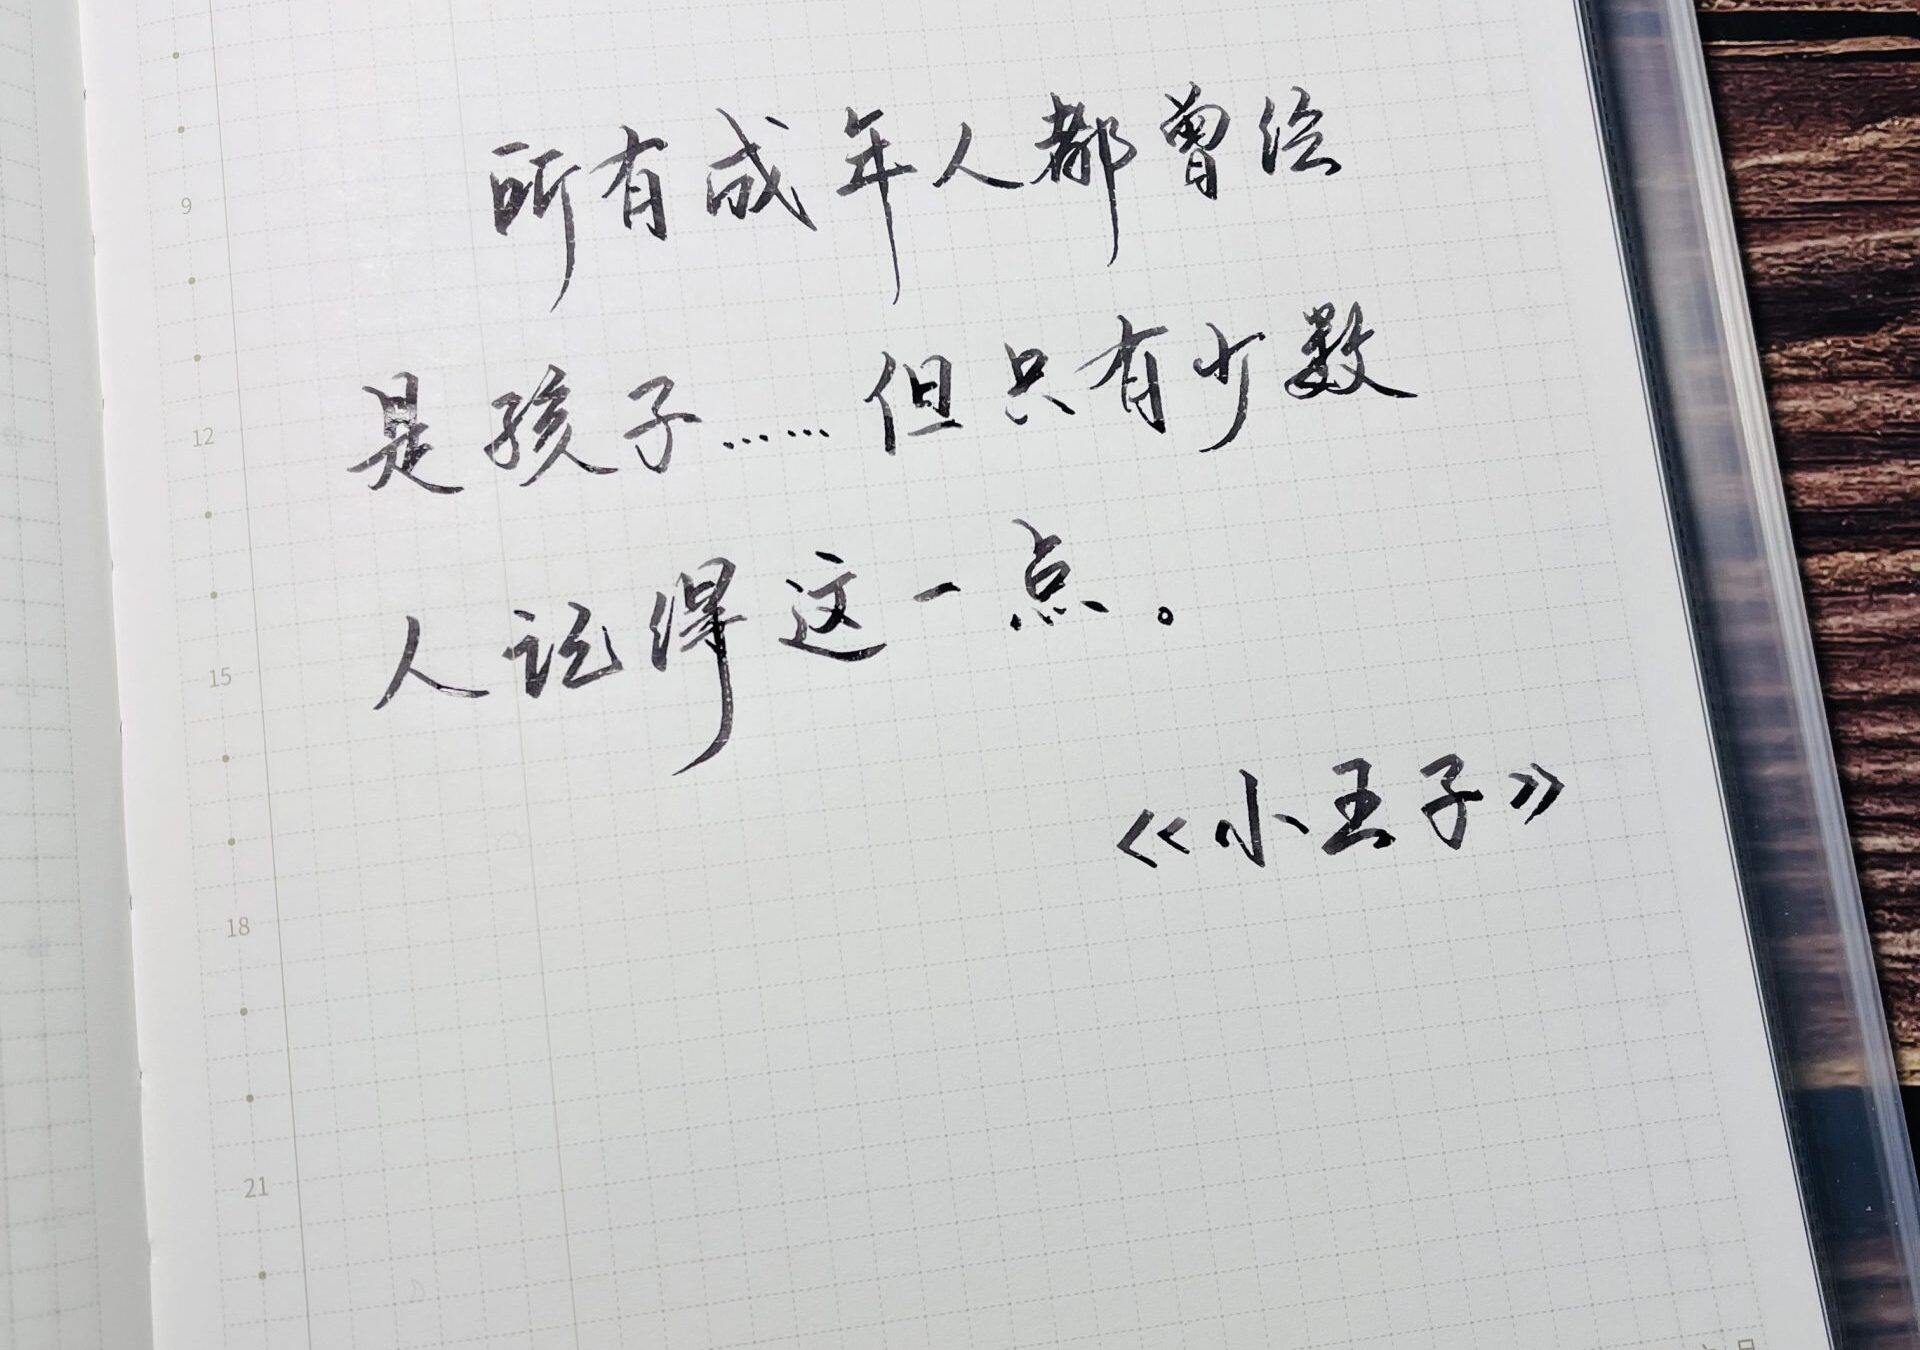 所有成年人都曾经
9
是孩子……但只有少数
12
人记得这一点。
15
《小王子》
18
21